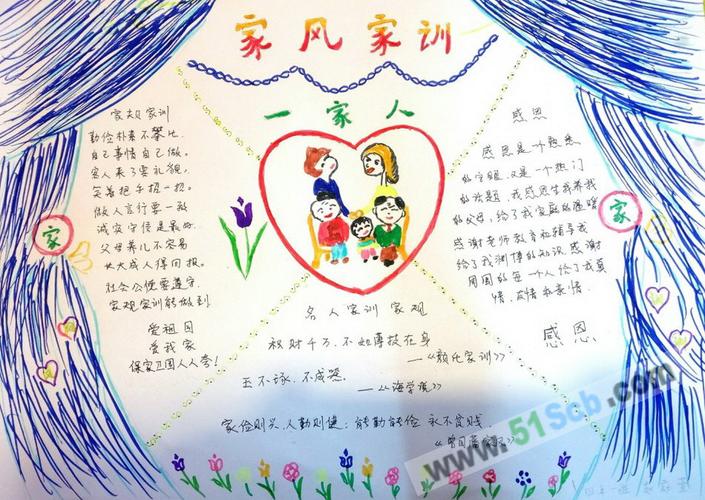 家风家训
一家人
家规家训
勤俭朴素不攀比
自己事情自己做。
客人来了要礼貌,
笑着把手招一招。
做人言行要一致
诚实守信是最好.
父母养儿不容易
长大成人得回报。
社会公德要遵守
家规家训能做到
爱祖国
爱我家
保家卫国人人夸!
感恩
感恩是一个熟悉
的字眼,又是一个热门
的话题,我感恩生我养我
的父母,给了我家庭的温暖
感谢老师教育和辅导我
给了我渊博的知识.感谢
周围的每一个人给了我真
情、友情和亲情.
感恩
家
家
名人家训家规
积财千万,不如薄技在身
—《颜氏家训》
玉不琢,不成器.
家俭则兴,人勤则健;能勤能俭 永不贫贱.
www.51Scb.com